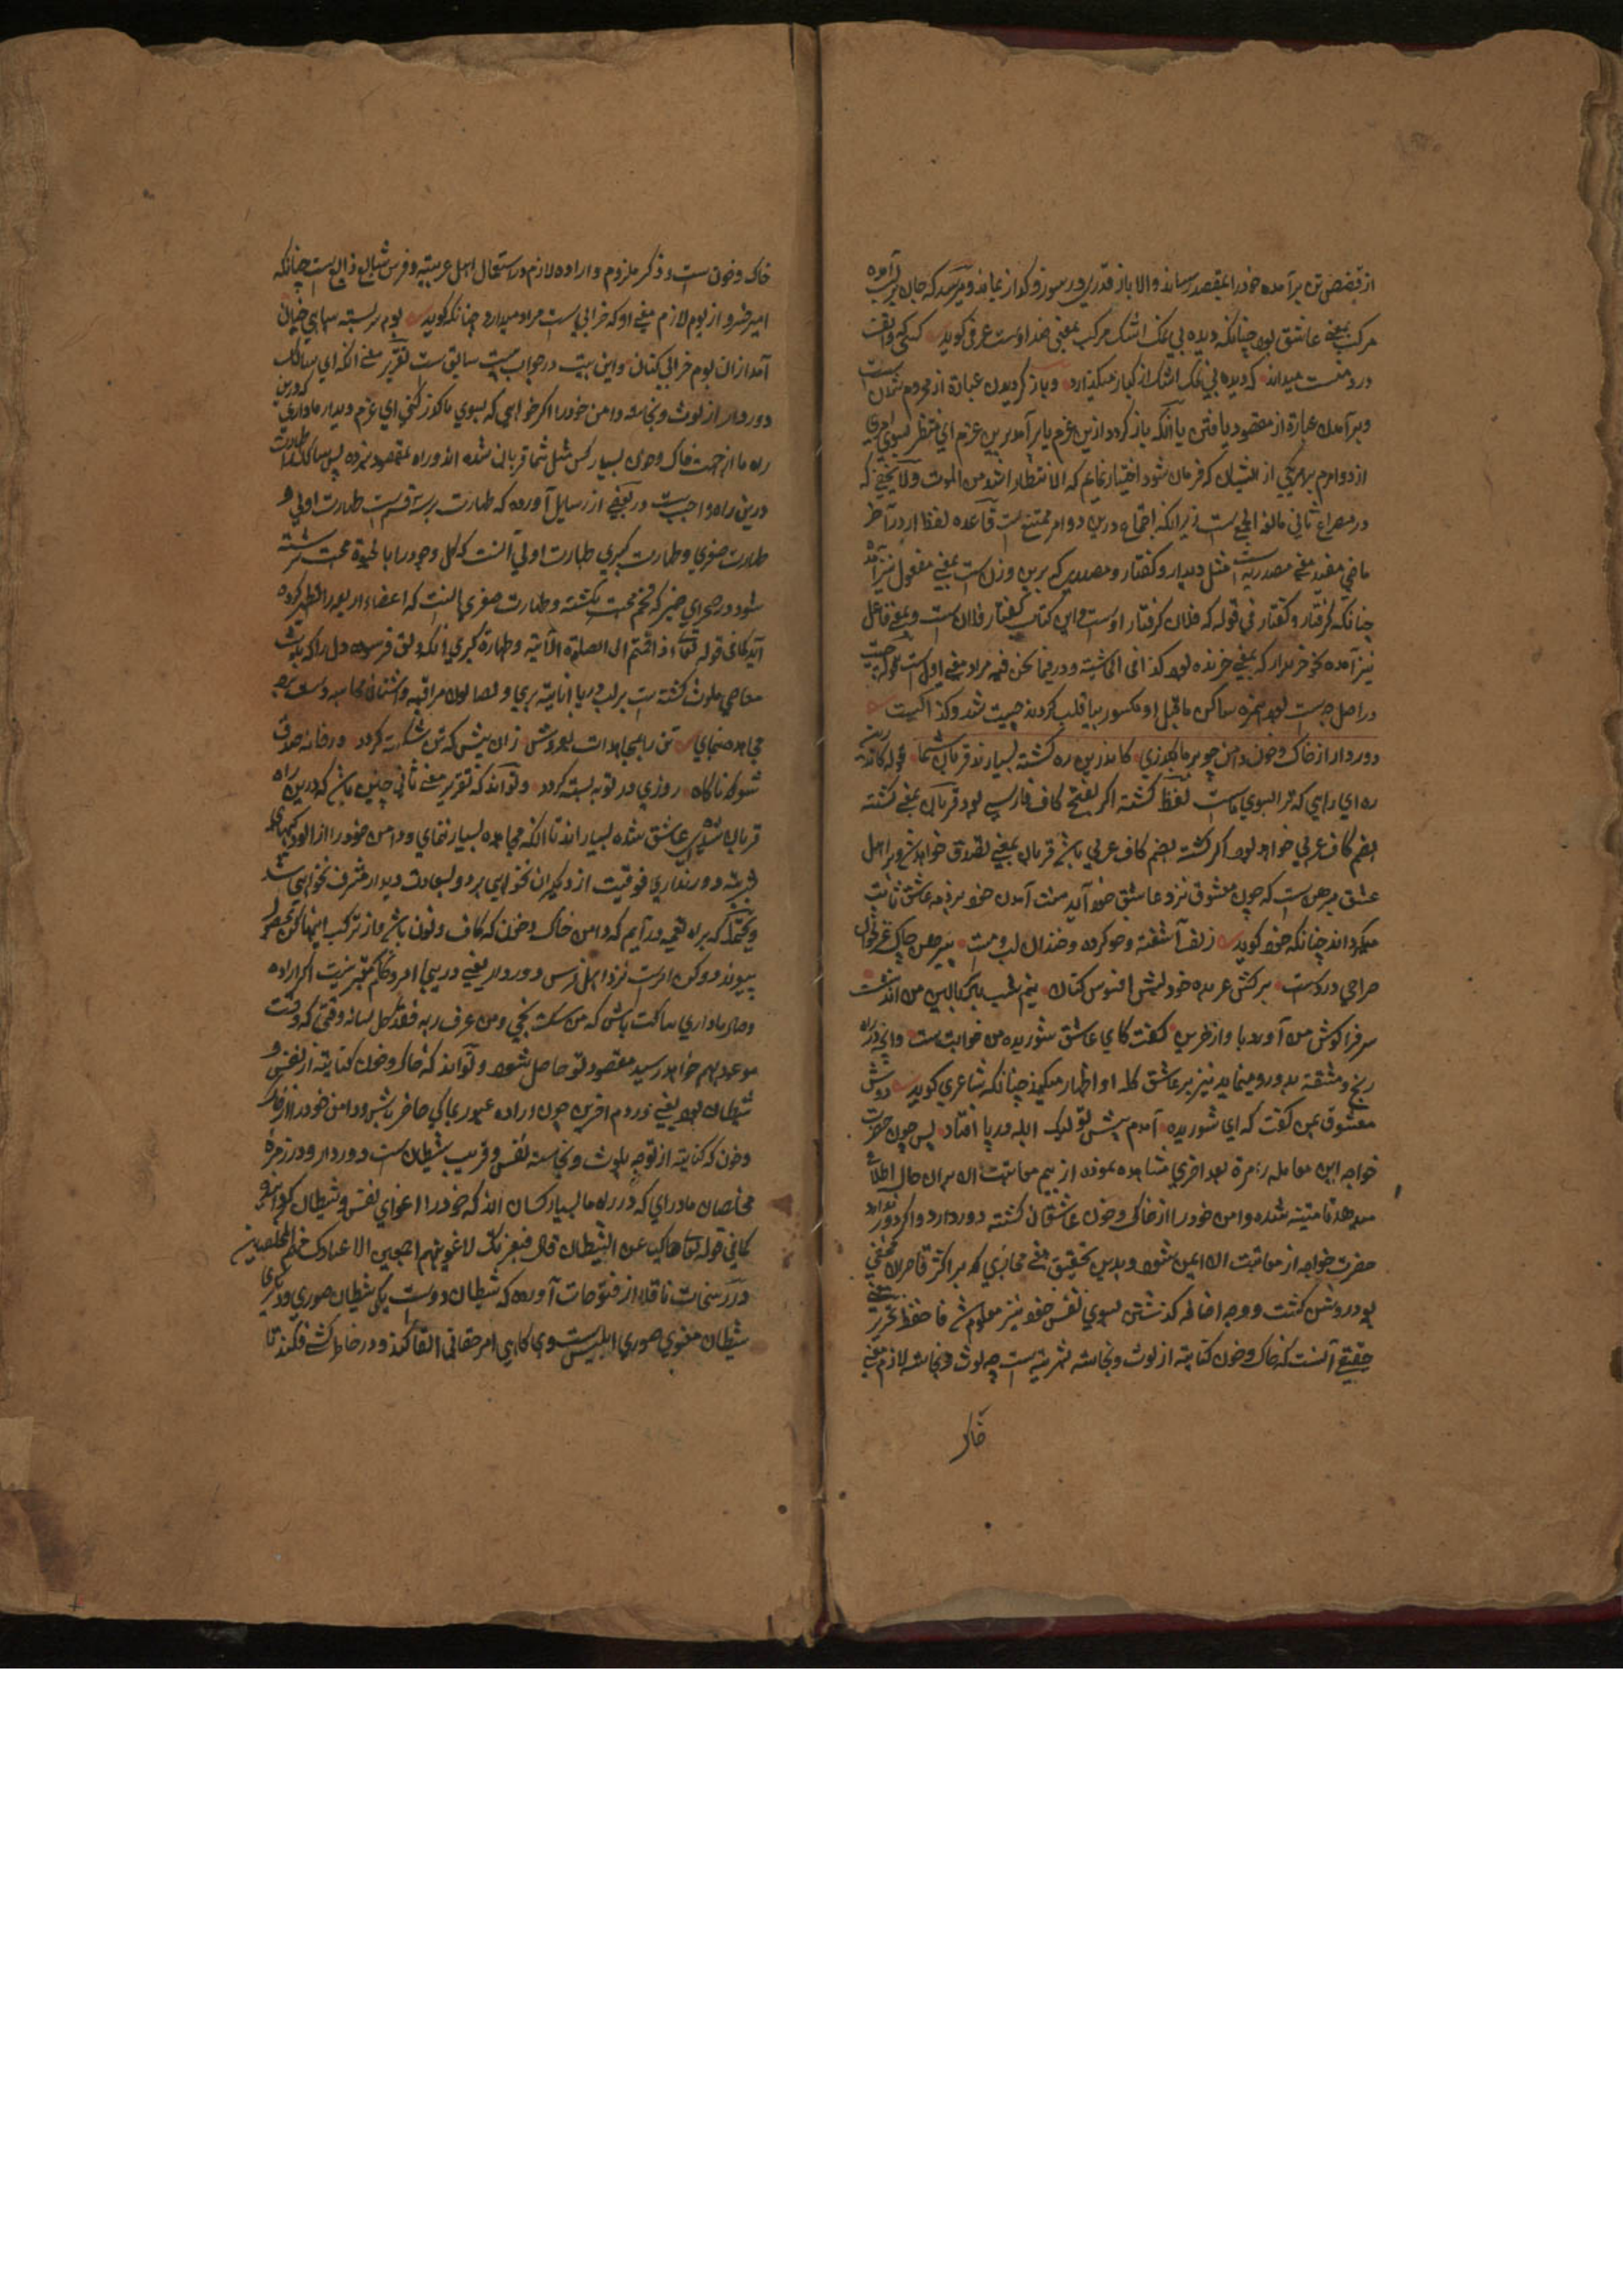 از قفص تن برآمده خود را بمقصد رساند والا باز قدری در سوز و گداز بماند و پرسد که جان بر لب آمده
مرکب بمعنی عاشق بود چنانکه دیده بی نمک اشک مرکب بمعنی خداوست عرفی گوید کسی واقف
درد منست میداند که دیده بی نمک اشک از کبار میگذارد و باز گردیدن عبارة از محروم شدن است
و برآمدن عبارة از مقصود یافتن یا آنکه باز گردد ازین عزم یا برآمد برین عزم ای منتظر بسوی امری
ازدوامرم بهر یکی از ایشان که فرمان شود اختیار نمایم که الانتظار اشد من الموت ولا یخفی که
در مصراع ثانی مانعة الجمع است زیرا که اجتماع درین دو امر ممتنع است قاعده لفظ ار در آخر
ماضی مفید معنی مصدریه است مثل دیدار و گفتار و مصدری که برین وزن است بمعنی مفعول نیز آمده
چنانکه گرفتار و گفتار فی قوله که فلان گرفتار اوست و این کتاب گفتار فلان است و بمعنی فاعل
نیز آمده نحو خریدار که بمعنی خرنده بود کذا فی الحاشیة و در فیما نحن فیه مراد معنی اول است قوله چیست
در اصل چه است بود همزه ساکن ماقبل او مکسور بیا قلب کردند چیست شد و کذا کیست
دور دار از خاک و خون دامن چو بر ما بگذری کاندرین ره کشته بسیارند قربان شما قوله کاندرین
ره ای راهی که ترا بسوی ماست لفظ کشته اگر بفتح کاف فارسی بود قربان بمعنی کشته
بضم کاف عربی خواهد بود اگر کشته بضم کاف عربی باشد قربان بمعنی تصدق خواهد شد و بر اهل
عشق مبرهن است که چون معشوق نزد عاشق خود آید منت آمدن خود بر ذمه عاشق ثابت
میگرداند چنانکه خود گوید زلف آشفته و خو کرده و خندان لب و مست پیرهن چاک غزلخوان
صراحی در دست نرگسش عربده جوی لبش افسوس کنان نیم شب یار ببالین من آمد بنشست
سر فرا گوش من آورد با واز حزین گفت کای عاشق شوریده من خوابت هست و این ذره
رنج و مشقة بدو رو مینماید نیز بر عاشق گله او اظهار میکند چنانکه شاعری گوید دوش
معشوق بمن گفت که ای شوریده آمدم پیش تو لیک آبله در پا افتاد پس چون حضرت
خواجه این معامله را مرة بعد اخری مشاهده نموده از بیم معاتبت الان بران حال اطلاع
میدهد تا متنبه شده دامن خود را از خاک و خون عاشقان کشته دور دارد و اگر دور ندارد
حضرت خواجه از معاتبت الان ایمن شود و بدین تحقیق معنی مجازی که بر اکثر قاصران مخفی
بود روشن گشت و وجه اضافه گذشتن بسوی نفس خود نیز معلوم شد فاحفظ تحریر معنی
حقیقی آنست که خاک و خون کنایة از لوث و نجاسة بشریة است چه لوث و نجاسة لازم معنی
خاک
خاک و خون ست و ذکر ملزوم و اراده لازم در استعمال اهل عربیة و فرس شایع ذایع است چنانکه
امیر خسرو از بوم لازم معنی او که خرابی است مراد میدارد چنانکه گوید بوم بر بسته سپاهی خیال
آمد ازان بوم خرابی کنان و این بیت در جواب بیت سابق ست تقریر معنی آنکه ای سالک
دور دار از لوث و نجاسة دامن خود را اگر خواهی که بسوی ما گذر کنی ای عزم دیدار ما داری که درین
راه ما از جهت خاک و خون بسیار کس مثل شما قربانی شده اند و راه بمقصود نبرده پس سالک را طهارت
درین راه واجبست در بعضی از رسایل آورده که طهارت بر سه قسم است طهارت اولی و
طهارت صغری و طهارت کبری طهارت اولی آنست که کل وجود را بالحیوة محبت سرشته
شود و در صحرای ضمیر که تخم محبت کشته و طهارت صغری آنست که اعضاء اربعه را تطهیر کرده
آید کما فی قوله تعالی اذا قمتم الی الصلوة الآیة و طهارة کبری آنکه دلق فرسوده دل را که بلوث
معاصی ملوث گشته است بر لب دریا انابة بری و بصابون مراقبه و اشنان محاسبه و سنگ
مجاهده صفا‌ی تن را بمجاهدات بفروش زان پیش که تن شکسته گردد در خانه صدق
شو که ناگاه روزی در توبه بسته گردد و تواند که تقریر معنی ثانی چنین باشد که درین راه
قربانی شده عاشق شده بسیار اند تا آنکه مجاهده بسیار ننمای و دامن خود را از آلودگیهای
بشریه دور نداری فوقیت از دیگران نخواهی برد و بسعادت دیدار مشرف نخواهی شد
و یحتمل که براه تعمیه در آییم که دامن خاک و خون که کاف و نون باشد و از ترکب اینها کن بحصول
پیوندد و کن امرست نزد اهل فرس دور دار یعنی در پی امر و تکلم بمقر نیست اگر اراده
وصال ما داری ساکت باش که من سکت نجی و من عرف ربه فقد کل لسانه وقتی که وقت
موعد بهم خواهد رسید مقصود تو حاصل شود و تواند که خاک و خون کنایة از نفس و
شیطان بود یعنی در دم آخرین چون اراده عبور بما کی حاضر باش و دامن خود را از خاک
و خون که کنایة از توجه بلوث و نجاسة نفس و قریب شیطان ست دور دار و در زمرة
مخلصان ما در ای که در راه ما بسیار کسان اند که خود را اغوای نفس و شیطان گواه شو
کما فی قوله تعالی حاکیا عن الشیطان قال فبعزتک لاغوینهم اجمعین الا عبادک منهم المخلصین
در رشحات ناقلا از فتوحات آورده که شیطان دوست یکی شیطان صوری و دیگری
شیطان معنوی صوری ابلیس ست وی گاهی امر حقانی القا کند و در خاطر کسی فکند تا